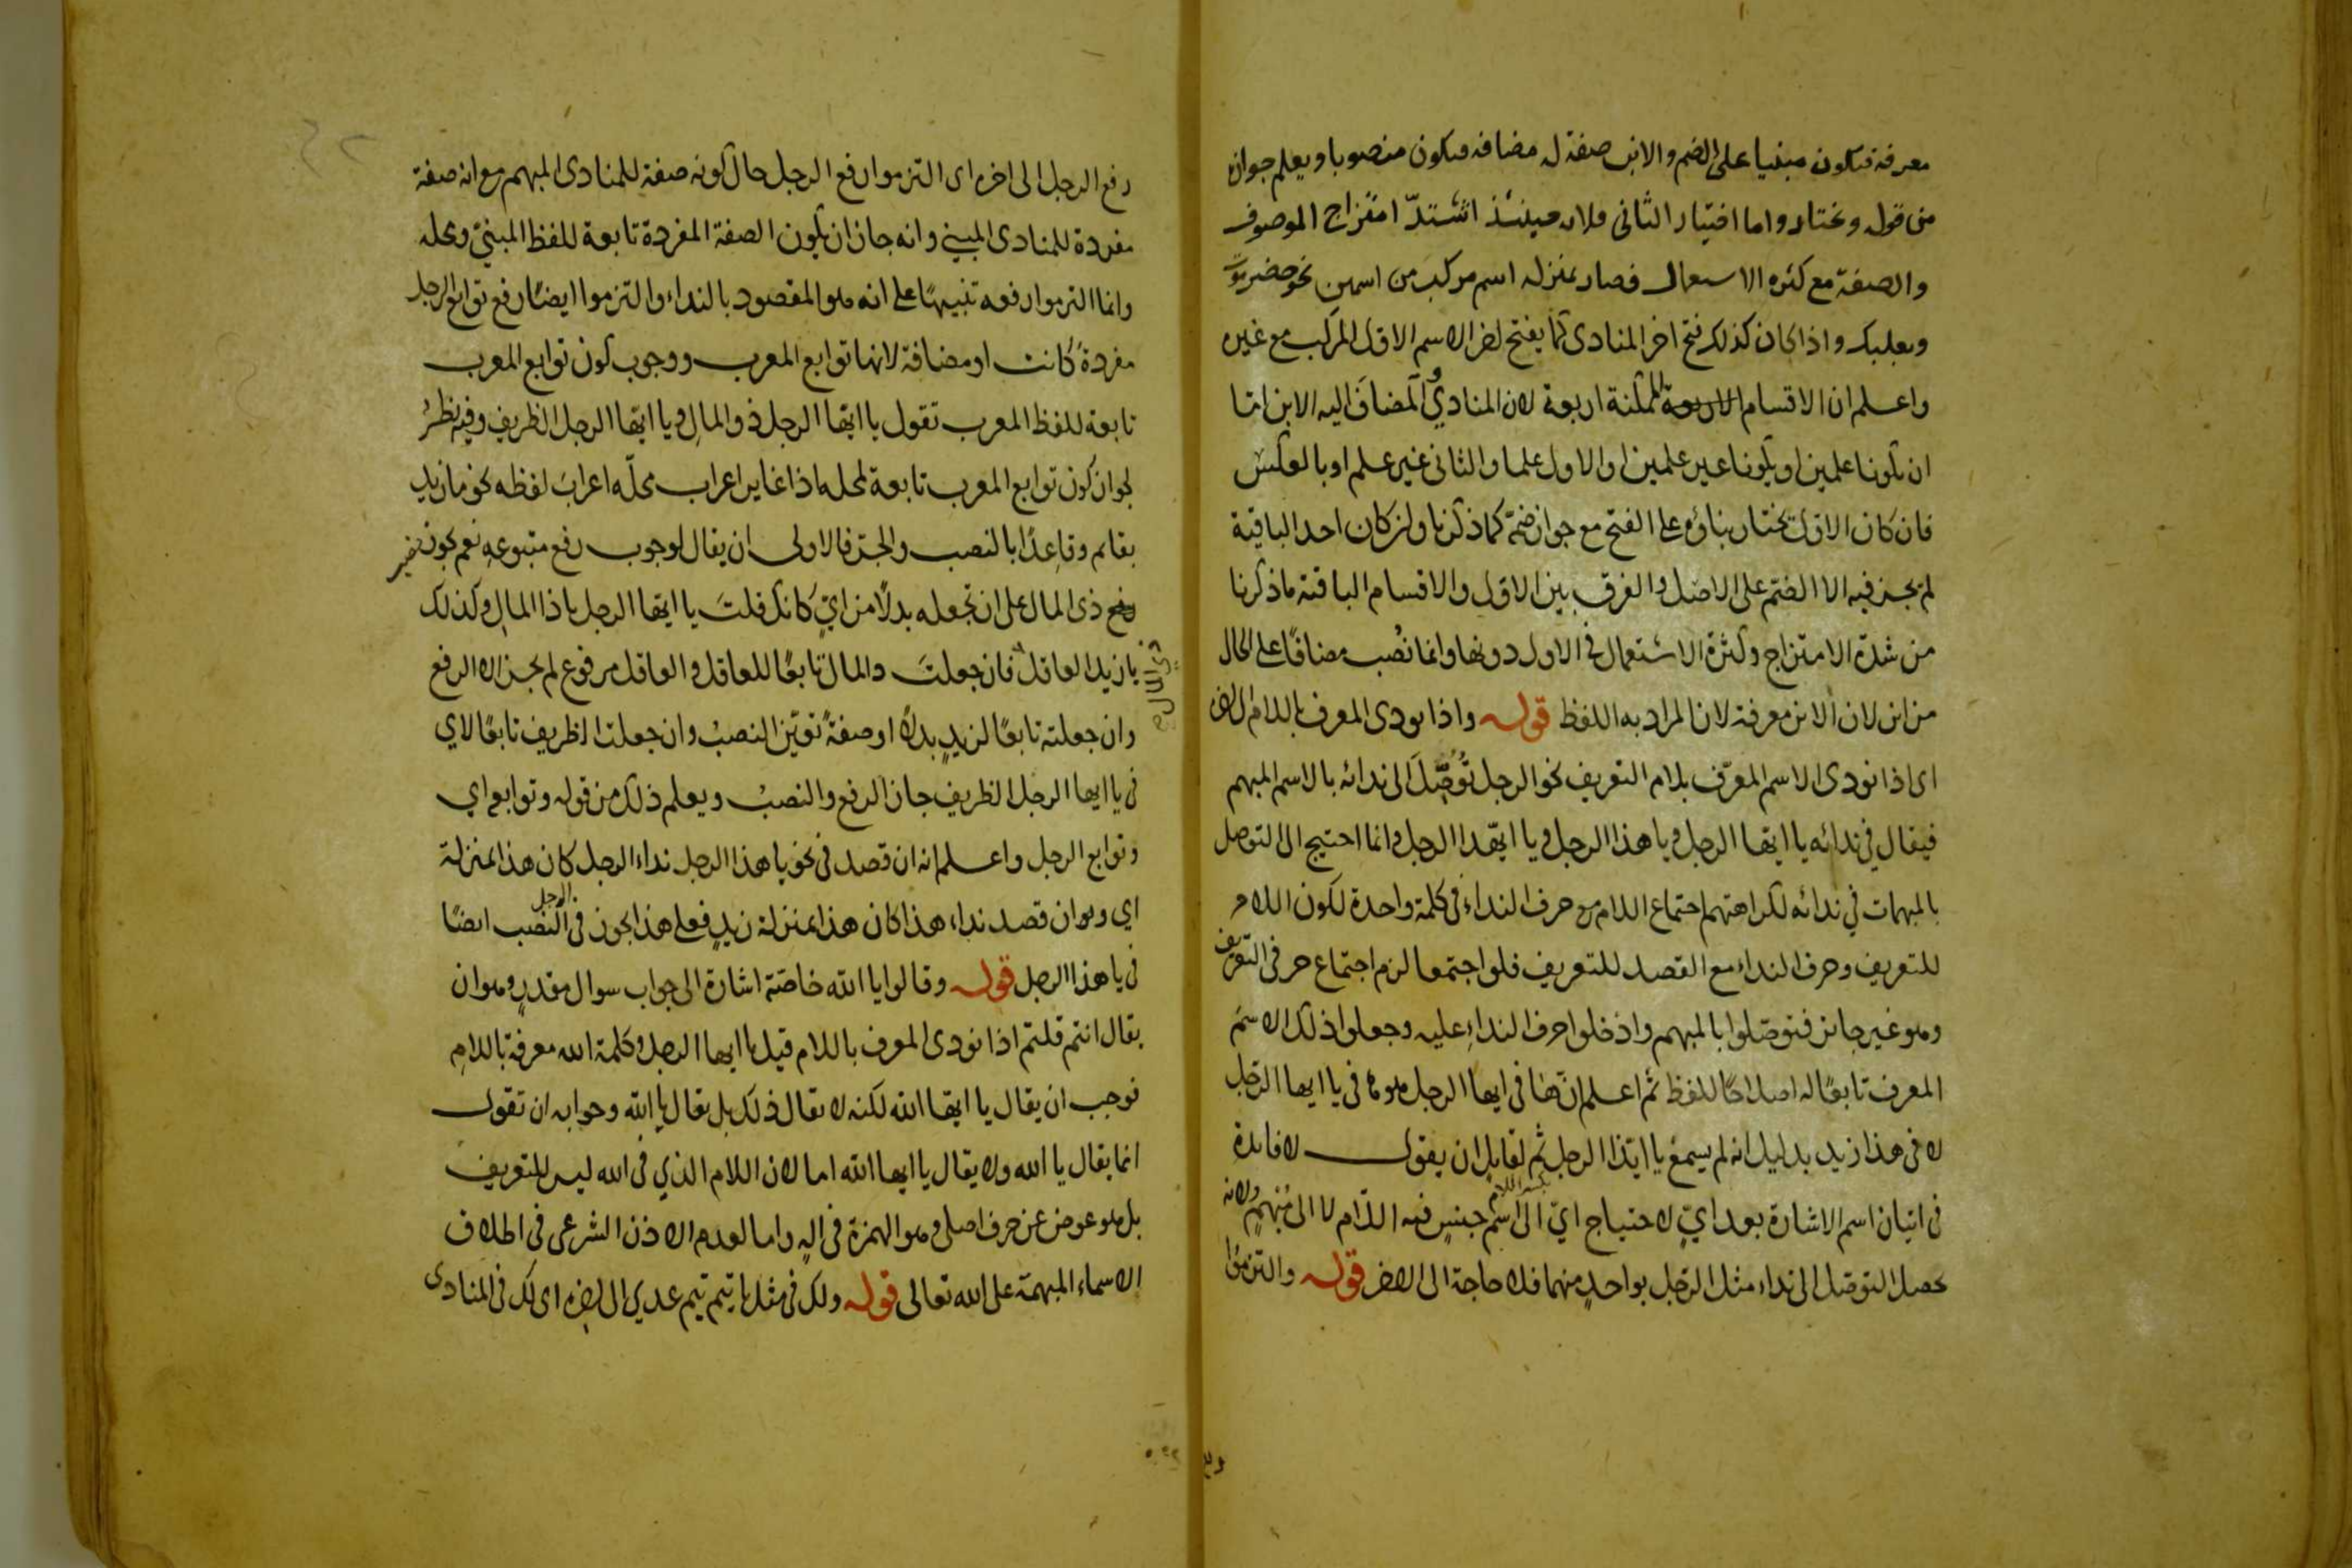 معرفة فيكون مبنيا على الضم والابن صفة له مضافه فيكون منصوبا ويعلم جوازه
من قوله ويختار واما اختيار الثانى فلان حينئذ اشتدّ امتزاج الموصوف
والصفة مع كثره الاستعمال فصار بمنزله اسم مركب من اسمين نحو حضرموت
وبعلبك واذا كان كذلك فتح اخر المنادى كما يفتح اخر الاسم الاول المركب مع غيره
واعلم ان الاقسام الممكنة اربعة لان المنادى والمضاف اليه الابن اما
ان يكونا علمين او يكونا غير علمين او الاول علما والثانى غير علم او بالعكس
فان كان الاول يختار بناؤه على الفتح مع جواز ضمّه كما ذكرنا وان كان احد الباقية
لم يجز فيه الا الضم على الاصل والفرق بين الاول والاقسام الباقية ما ذكرنا
من شدة الامتزاج وكثرة الاستعمال فى الاول دونها وانما نُصب مضافًا على الحال
من ابن لان الابن معرفة لان المراد به اللفظ قوله واذا نودى المعرف باللام الى اخره
اى اذا نودى الاسم المعرّف بلام التعريف نحو الرجل تُوُصِّلَ الى ندائه بالاسم المبهم
فيقال فى ندائه يا ايها الرجل ويا هذا الرجل ويا ايّهذا الرجل وانما احتيج الى التوصل
بالمبهمات في ندائه لكراهتهم اجتماع اللام مع حرف النداء فى كلمة واحدة لكون اللام
للتعريف وحرف النداء مع القصد للتعريف فلو اجتمعا لزم اجتماع حرفى التعريف
وهو غير جائز فتوصّلوا بالمبهم وادخلوا حرف النداءِ عليه وجعلوا ذلك الاسم
المعرف تابعًا له اصلاحًا للفظ ثم اعلم ان ها فى ايها الرجل هو ها فى يا ايها الرجل
لا فى هذا زيد بدليل انه لم يسمع يا ايّذا الرجل ثم لقايل ان يقول لا فايدة
فى اتيان اسم الاشارة بعد ايّ لاحتياج ايّ الى اسم جنسٍ فيه اللام لا الى مُبهمٍ ولانه
يحصل التوصّل الى نداء مثل الرجل بواحدٍ منهما فلا حاجة الى الاخر قوله والتزموا
رفع الرجل الى اخره اى التزموا رفع الرجل حال كونه صفة للمنادى المبهم مع انه صفة
مفردة للمنادى المبنى وانه جاز ان يكون الصفة المفردة تابعة للفظ المبنىّ ومحله
وانما التزموا رفعه تنبيهًا على انه هو المقصود بالنداء والتزموا ايضًا رفع توابع الرجل
مفردةً كانت او مضافة لانها توابع المعرب ووجوب كون توابع المعرب
تابعة للفظ المعرب تقول يا ايها الرجل ذو المالِ ويا ايها الرجل الظريف وفيه نظرٌ
لجواز كون توابع المعرب تابعة لمحله اذا غاير اعراب محلّه اعراب لفظه نحو ما زيد
بقايم وقاعِدًا بالنصب والجرّ فالاولى ان يقال لوجوب رفع متبوعهِ نعم يجوز
ذى المال على ان تجعله بدلًا من ايّ كانك قلتَ يا ايها الرجل يا ذا المالِ وكذلك
يا زيد العاقل فان جعلتَ ذا المال تابعًا للعاقل والعاقل مرفوع لم يجز الا الرفع
ذى المال
وان جعلته تابعًا لزيدٍ بدلًا او صفةً تعيّن النصبُ وان جعلت الظريف تابعًا لاي
فى يا ايها الرجل الظريف جاز الرفع والنصبُ ويعلم ذلك من قوله وتوابع اي
وتوابع الرجل واعلم انه ان قصد فى نحو يا هذا الرجل نداء الرجل كان هذا بمنزلة
اي وان قصد نداء هذا كان هذا بمنزلة زيدٍ فعلى هذا يجوز فى الرجل النصب ايضًا
فى يا هذا الرجل قوله وقالوا يا الله خاصّة اشارة الى جواب سوال مقدرٍ وهو ان
يقال انتم قلتم اذا نودى المعرف باللام قيل يا ايها الرجل وكلمة الله معرفة باللامِ
فوجب ان يقال يا ايها الله لكنه لا يقال ذلك بل يقال يا الله وجوابه ان تقول
انما يقال يا الله ولا يقال يا ايها الله اما لان اللام الذي فى الله ليس للتعريف
بل هو عوض عن حرف اصلى وهو الهمزة فى الهٍ واما لعدم الاذن الشرعى فى اطلاق
الاسماء المبهمة على الله تعالى قوله ولك فى مثل يا تيم تيم عدي الى اخره اى لك فى المنادى